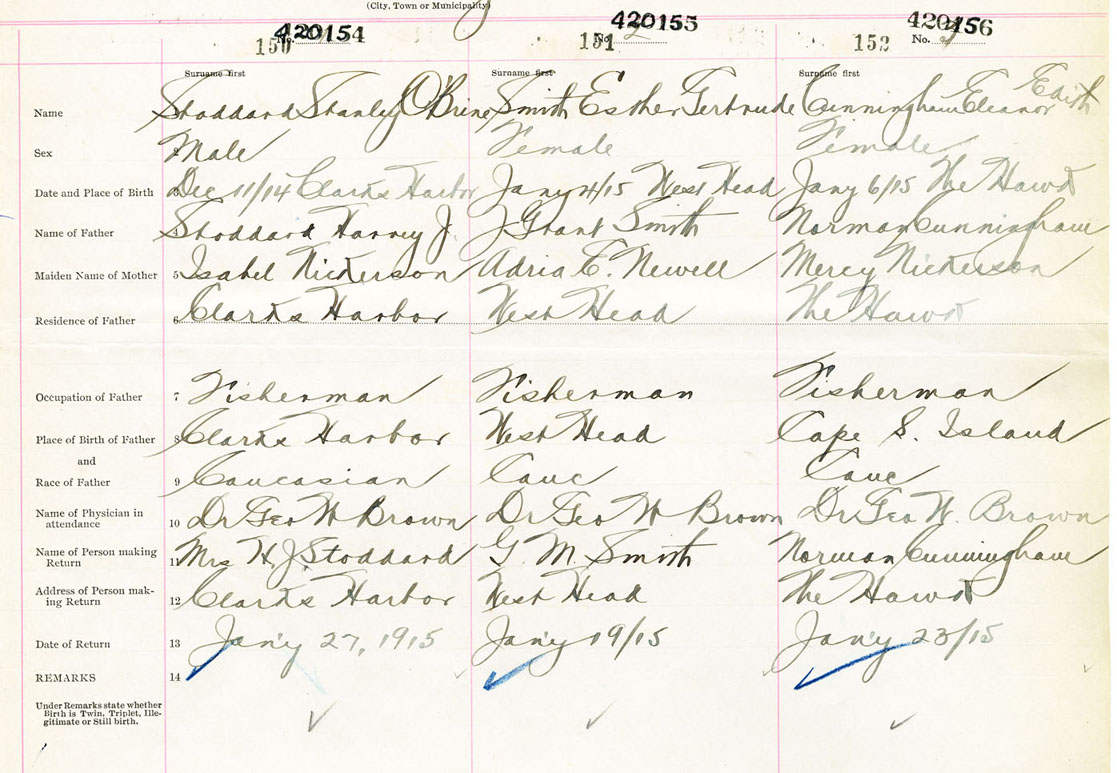 (City, Town or Municipality)
420154 420155 420156
150 No. 151 No. 152 No.
Surname first Surname first Surname first
Name Stoddard Stanley O'Brine Smith Esther Gertrude Cunningham Eleanor Edith
Sex 2 Male Female Female
Date and Place of Birth 3 Dec 11/14 Clarks Harbor Jany 4/15 West Head Jany 6/15 The Hawk
Name of Father 4 Stoddard Harvey J. J Grant Smith Norman Cunningham
Maiden Name of Mother 5 Isabel Nickerson Adria E. Newell Mercy Nickerson
Residence of Father 6 Clarks Harbor West Head The Hawk
Occupation of Father 7 Fisherman Fisherman Fisherman
Place of Birth of Father 8 Clarks Harbor West Head Cape S. Island
and
Race of Father 9 Caucasian Cauc Cauc
Name of Physician in
attendance 10 Dr Geo W Brown Dr Geo W Brown Dr Geo W. Brown
Name of Person making
Return 11 Mrs H. J. Stoddard G. M. Smith Norman Cunningham
Address of Person mak-
ing Return 12 Clarks Harbor West Head The Hawk
Date of Return 13 Jan'y 27, 1915 Jan'y 19/15 Jan'y 23/15
REMARKS 14
Under Remarks state whether
Birth is Twin, Triplet, Ille-
gitimate or Still birth.